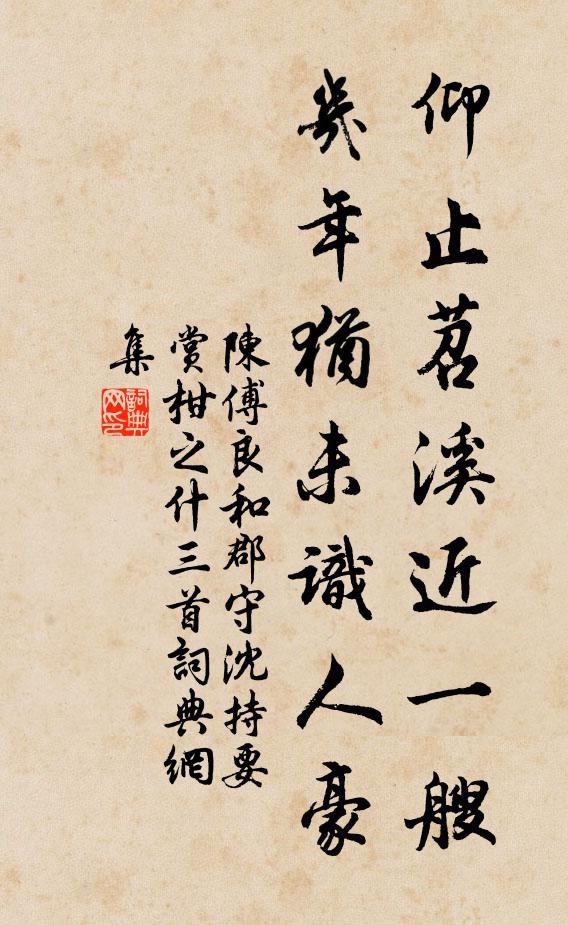 仰止苕溪近一艘
幾年猶未識人豪
陳傅良和郡守沈持要
賞柑之什三首詞典網
集
詞典網印